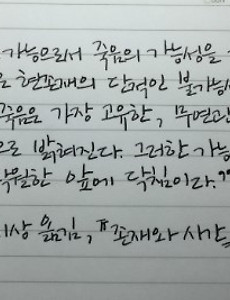 가능으로서 죽음의 가능성을
현존재의 단적인 불가능성
죽음은 가장 고유한, 무연관
으로 밝혀진다. 그러한 가능
탁월한 앞에 닥침이다."
이상 옮김, 『존재와 시간